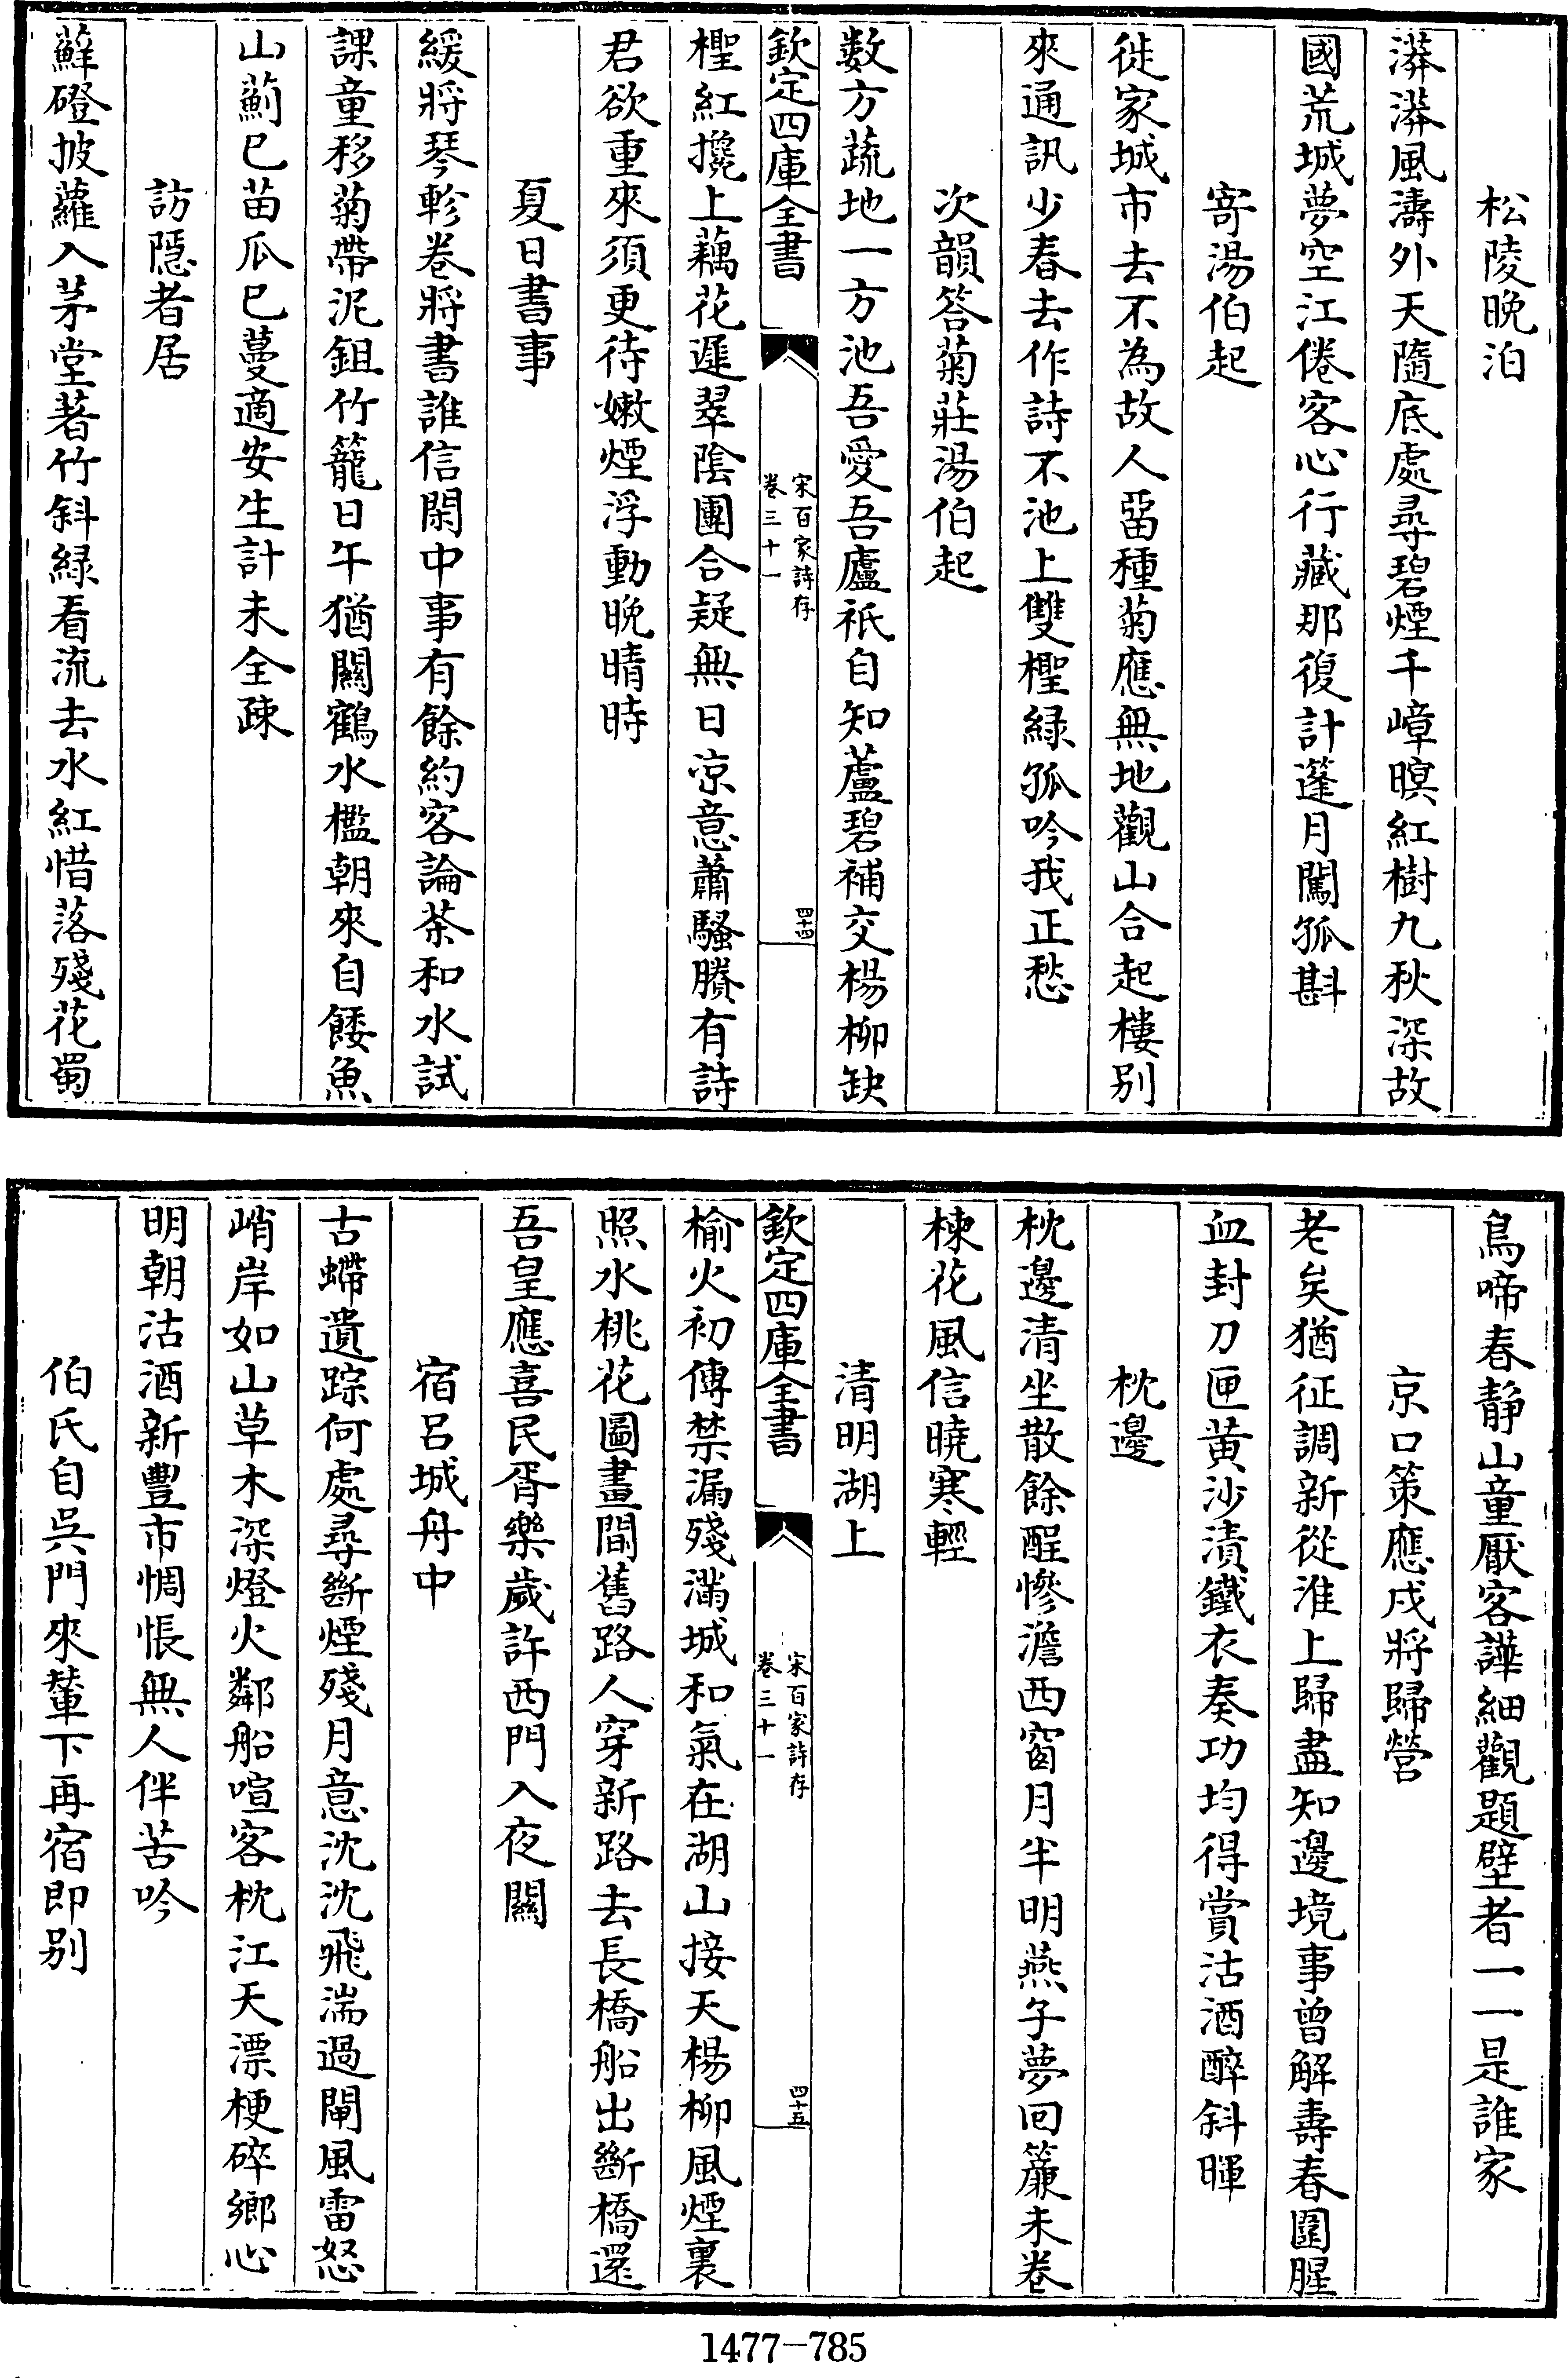 松陵晚泊
漭漭風濤外天隨底處尋碧煙千嶂暝紅樹九秋深故
國荒城夢空江倦客心行藏那復計篷月闖孤斟
寄湯伯起
徙家城市去不為故人留種菊應無地觀山合起樓别
來通訊少春去作詩不池上雙檉緑孤吟我正愁
次韻答菊莊湯伯起
数方蔬地一方池吾愛吾廬祇自知蘆碧補交楊柳缺
欽定四庫全書
宋百家詩存
卷三十一
四十四
檉紅攙上藕花遲翠陰團合疑無日凉意蕭騷賸有詩
君欲重來須更待嫩煙浮動晚晴時
夏日書事
緩將琴軫卷將書誰信閑中事有餘約客論茶和水試
課童移菊帶泥鉏竹籠日午猶關鶴水檻朝來自餧魚
山薊巳苗瓜巳蔓適安生計未全疎
訪隱者居
蘚磴披蘿入茅堂著竹斜緑看流去水紅惜落殘花蜀
鳥啼春静山童厭客譁細觀題壁者一一是誰家
京口策應戍將歸營
老矣猶征調新從淮上歸盡知邊境事曾解壽春圍腥
血封刀匣黄沙漬鐵衣奏功均得賞沽酒醉斜暉
枕邊
枕邊清坐散餘酲慘澹西窗月半明燕子夢回簾未卷
楝花風信曉寒輕
清明湖上
欽定四庫全書
宋百家詩存
卷三十一
四十五
榆火初傳禁漏殘滿城和氣在湖山接天楊柳風煙裏
照水桃花圖畫間舊路人穿新路去長橋船出斷橋還
吾皇應喜民胥樂歲許西門入夜關
宿呂城舟中
古㙺遺踪何處尋斷煙殘月意沈沈飛湍過閘風雷怒
峭岸如山草木深燈火鄰船喧客枕江天漂梗碎鄉心
明朝沽酒新豐市惆悵無人伴苦吟
伯氏自吳門來輦下再宿即别
1477-785